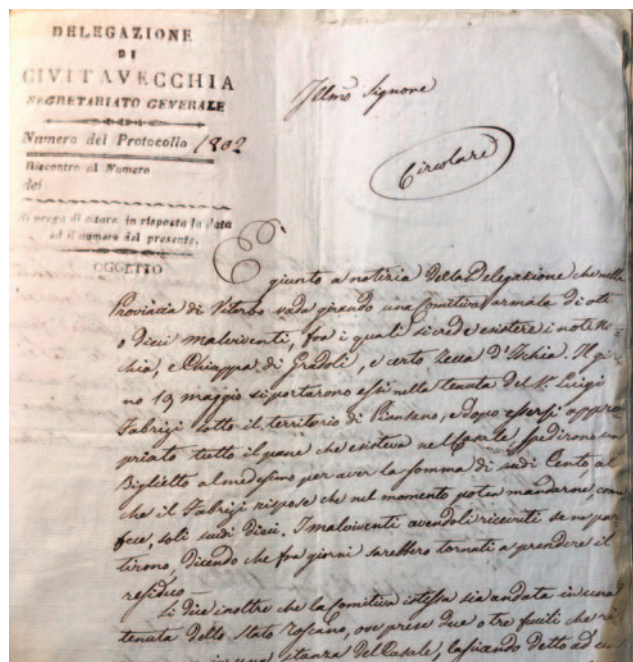 DELEGAZIONE
DI
CIVITAVECCHIA
SEGRETARIATO GENERALE
Numero del Protocollo 1802
Riscontro al Numero
dei
Si prega di citare in risposta la data
ed il numero del presente.
OGGETTO
Illmo Signore
Circolare
E giunto a notizia della Delegazione che nella
Provincia di Viterbo vada girando una Comitiva armata di otto
o dieci malviventi, fra i quali si crede esistere i noti
chia, e Chiappa di Gradoli, e certo Zecca d'Ischia. Il gior
no 19 maggio si portarono essi nella tenuta del Sr. Luigi
Fabrizi sotto il territorio di Piansano, e dopo essersi appro
priato tutto il pane che esisteva nel Casale, spedirono un
Biglietto al medesimo per aver la somma di scudi Cento, al
che il Fabrizi rispose che nel momento potea mandarne, come
fece, soli scudi Dieci. I malviventi avendoli ricevuti se ne par
tirono, dicendo che fra giorni sarebbero tornati a prendere il
residuo —
Si dice inoltre che la Comitiva istessa sia andata in una
tenuta dello Stato Toscano, ove prese due o tre fucili che
in una stanza del Casale, lasciando detto ad un